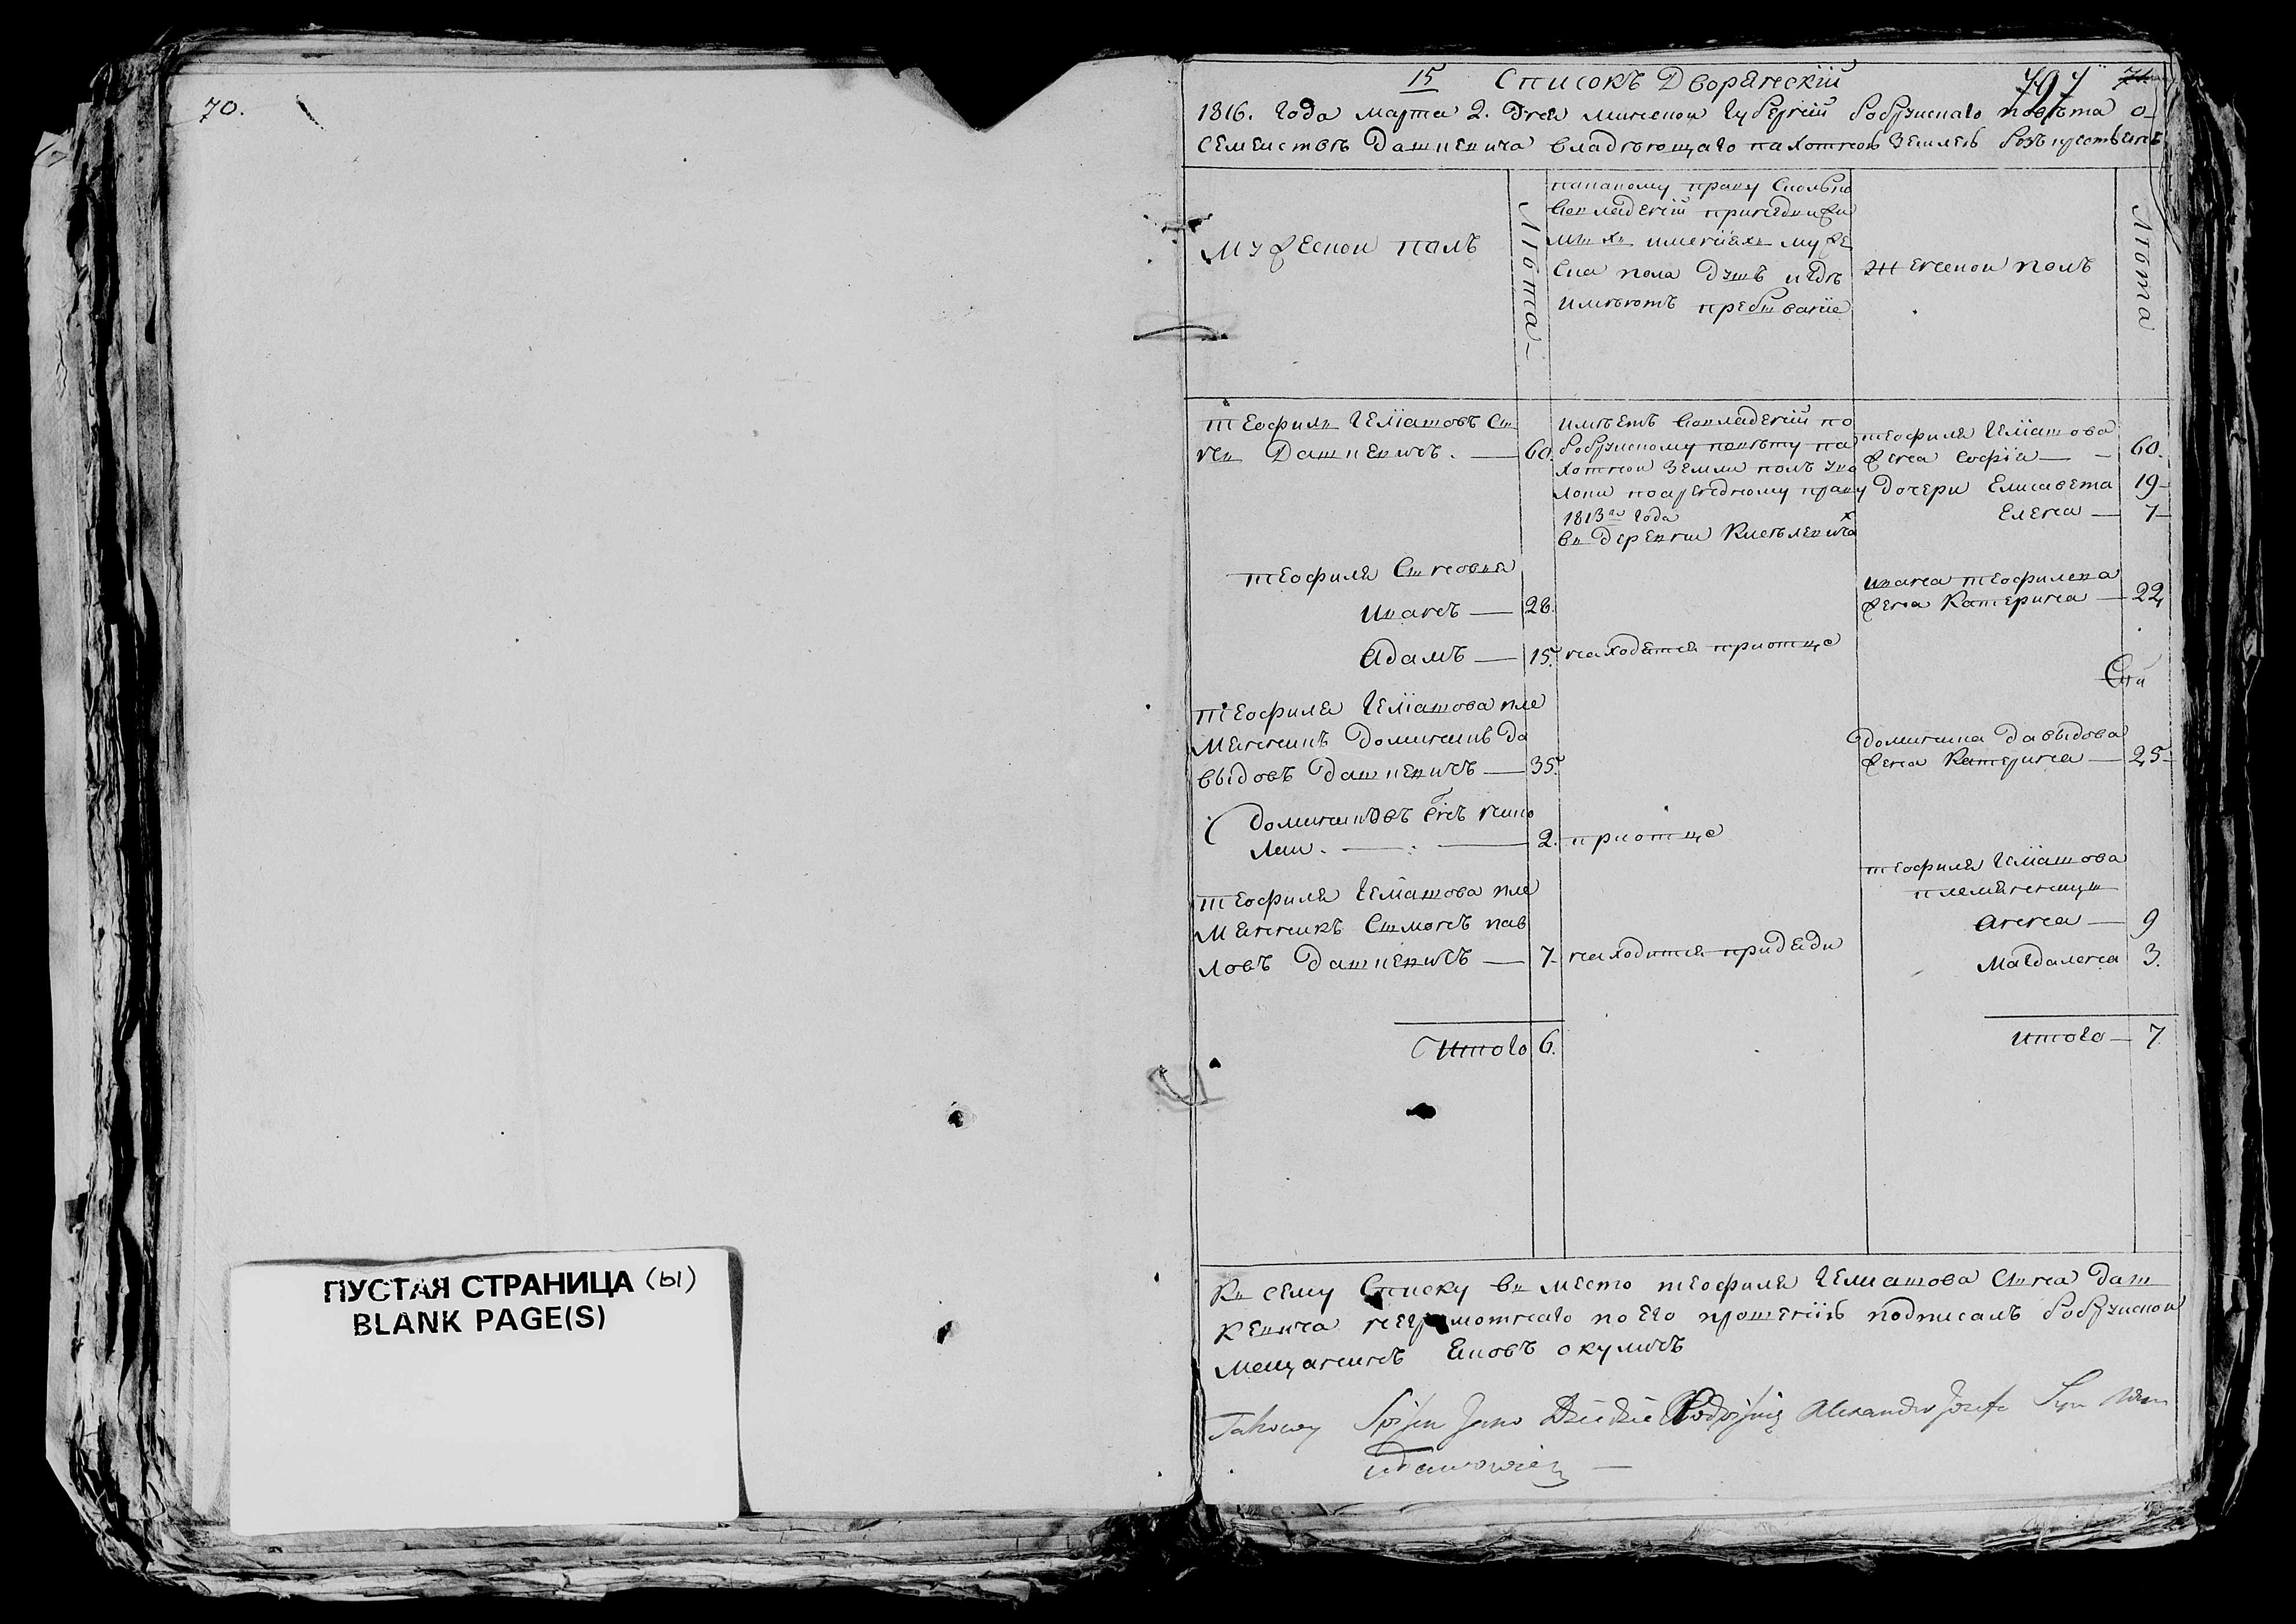 70.
ПУСТАЯ СТРАНИЦА (ы)
BLANK PAGE(S)
15 Списокъ Дворянскій
1816. года марта 2. дня минской губерніи бобруйскаго повѣта о
семействѣ Дашкевича владѣющаго пахотною землею
мужеской полъ
Лѣта
покакому праву сколько
вовладеніи
именіяхъ муже
ска пола душъ игдѣ
имѣютъ пребываніе
Женской полъ
Лѣта
теофилъ геліяшовъ сы
нъ Дашкевичъ. — 60.
имѣетъ вовладеніи по
бобруйскому повѣту па
хотной земли полъ уво
локи поарендному праву
1813го года
въ деревни
теофиля геліяшова
жена софія — 60.
дочери Елисавета 19
Елена — 7
теофиля сыновья
иванъ — 28.
Адамъ — 15. находятся приотце
ивана теофилева
жена Катерина — 22
теофиля геліяшова пле
мянникъ доминикъ да
выдовъ дашкевичъ — 35.
доминика давыдова
жена Катерина — 25
доминиковъ сынъ
2. приотце
теофиля геліяшова пле
мянникъ сымонъ пав
ловъ дашкевичъ — 7. находится придяди
теофиля геліяшова
племянницы
анна — 9
магдалена 3.
Итого 6.
итого — 7
Къ сему списку въ место теофиля геліяшова сына даш
кевича неграмотнаго по его прошенію подписалъ бобруйской
мещанинъ
Takowy Alexander Jozefa Syn